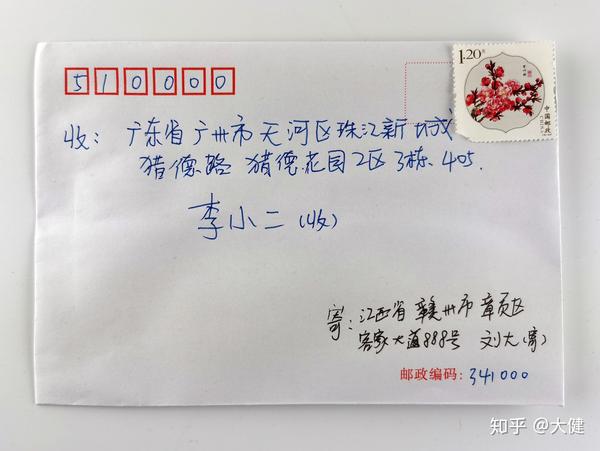 510000
1.20元
中国邮政
收：广东省广州市天河区珠江新城
猎德路 猎德花园2区3栋. 405.
李小二(收)
寄：江西省赣州市章贡区
客家大道888号 刘大(寄)
邮政编码：341000
知乎 @大健